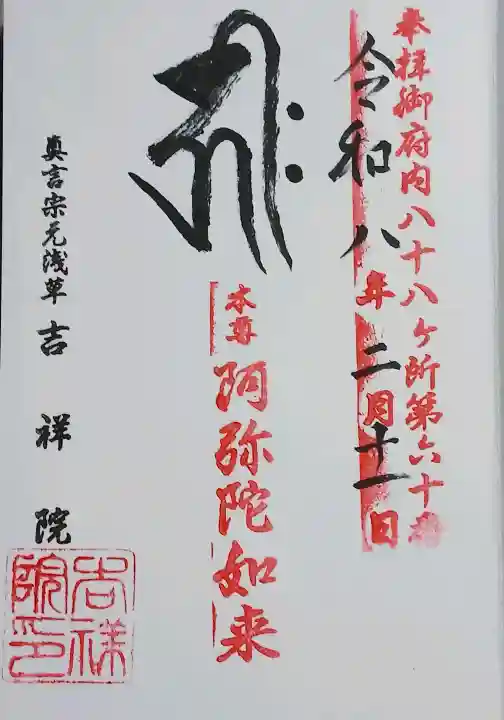 奉拝御府内八十八ヶ所第六十番
令和八年二月十一日
本尊
阿弥陀如来
真言宗元浅草 吉祥院
吉祥院印